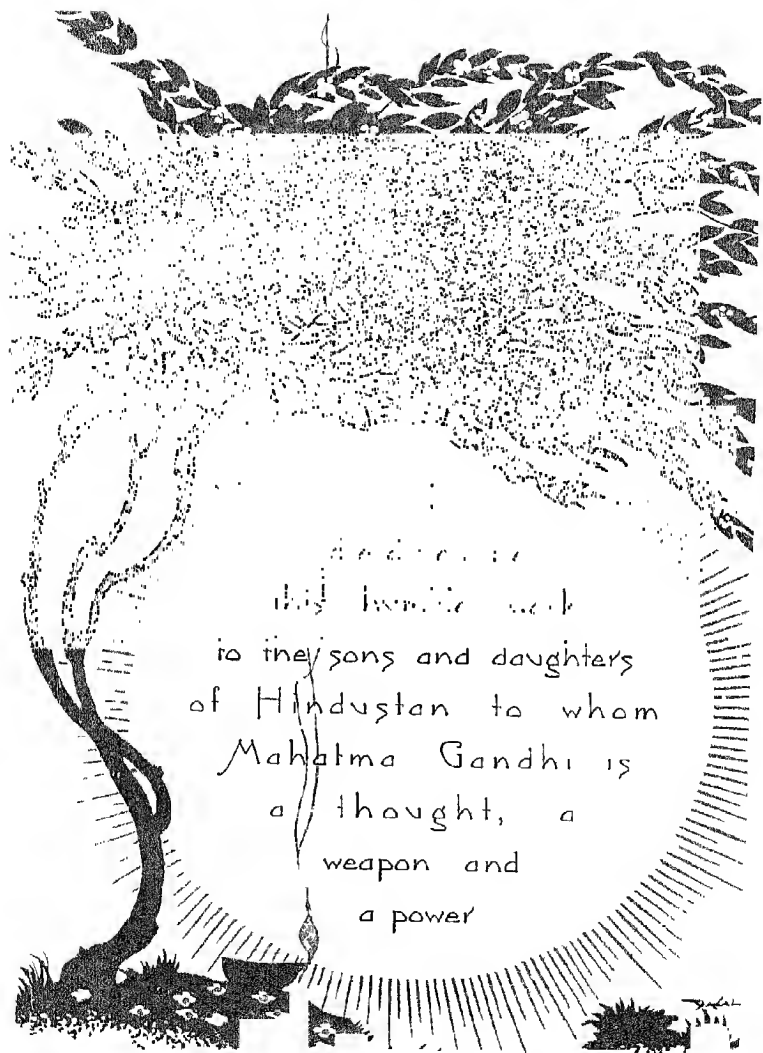 dedicate
this humble work
to the sons and daughters
of Hindustan to whom
Mahatma Gandhi is
a thought, a
weapon and
a power